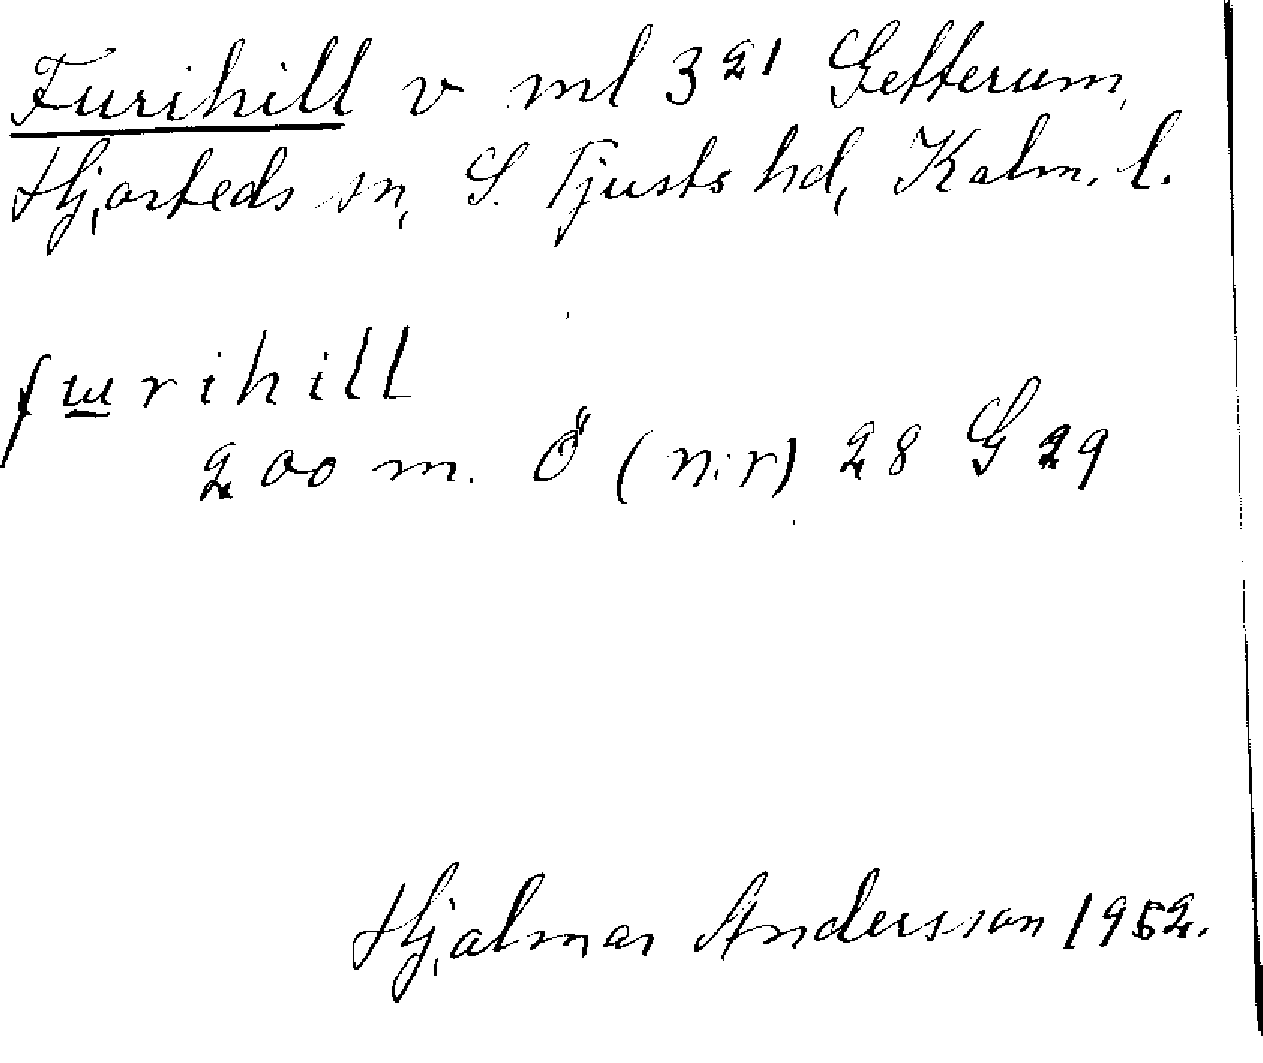 Furihill v ml 3²¹ Getterum,
Hjorteds sn, S. Tjusts hd, Kalm. l.
fɯrihill
200 m. Ö (n:r) 28 G 29
Hjalmar Andersson 1952.